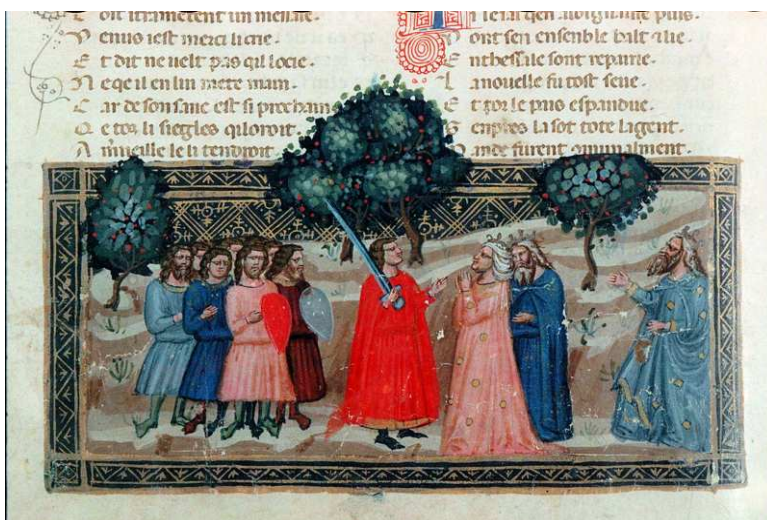 E nuoit itrametent un mesaie.
V enus iest merci li crie.
E t dit ne uelt pas qil locie.
N e qe il en lui mete main.
C ar de son sanc est si prochain
Q e toz li siegles qiloroit.
A le li tendroit.
puis.
ont sen ensenble balt lie.
E nthessaile sont repairie.
L anouelle fu tost seue.
E t por le pais espandue.
la sot tote lagent.
furent comunalment.